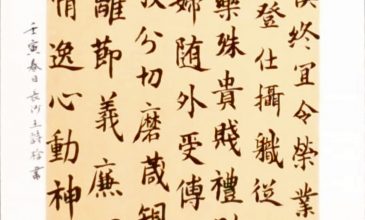 慎終宜令榮業
登仕攝職從
樂殊貴賤禮別
婦随外受傅
投分切磨箴規
離節義廉
情逸心動神
壬寅春日長沙王詩書